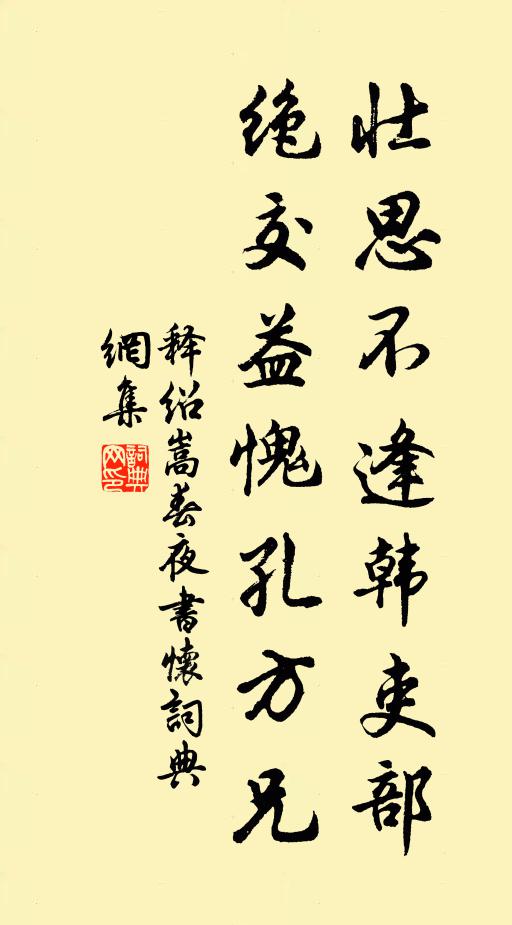 壮思不逢韩吏部
绝交益愧孔方兄
释绍嵩春夜书怀词典
網集
詞典
网印